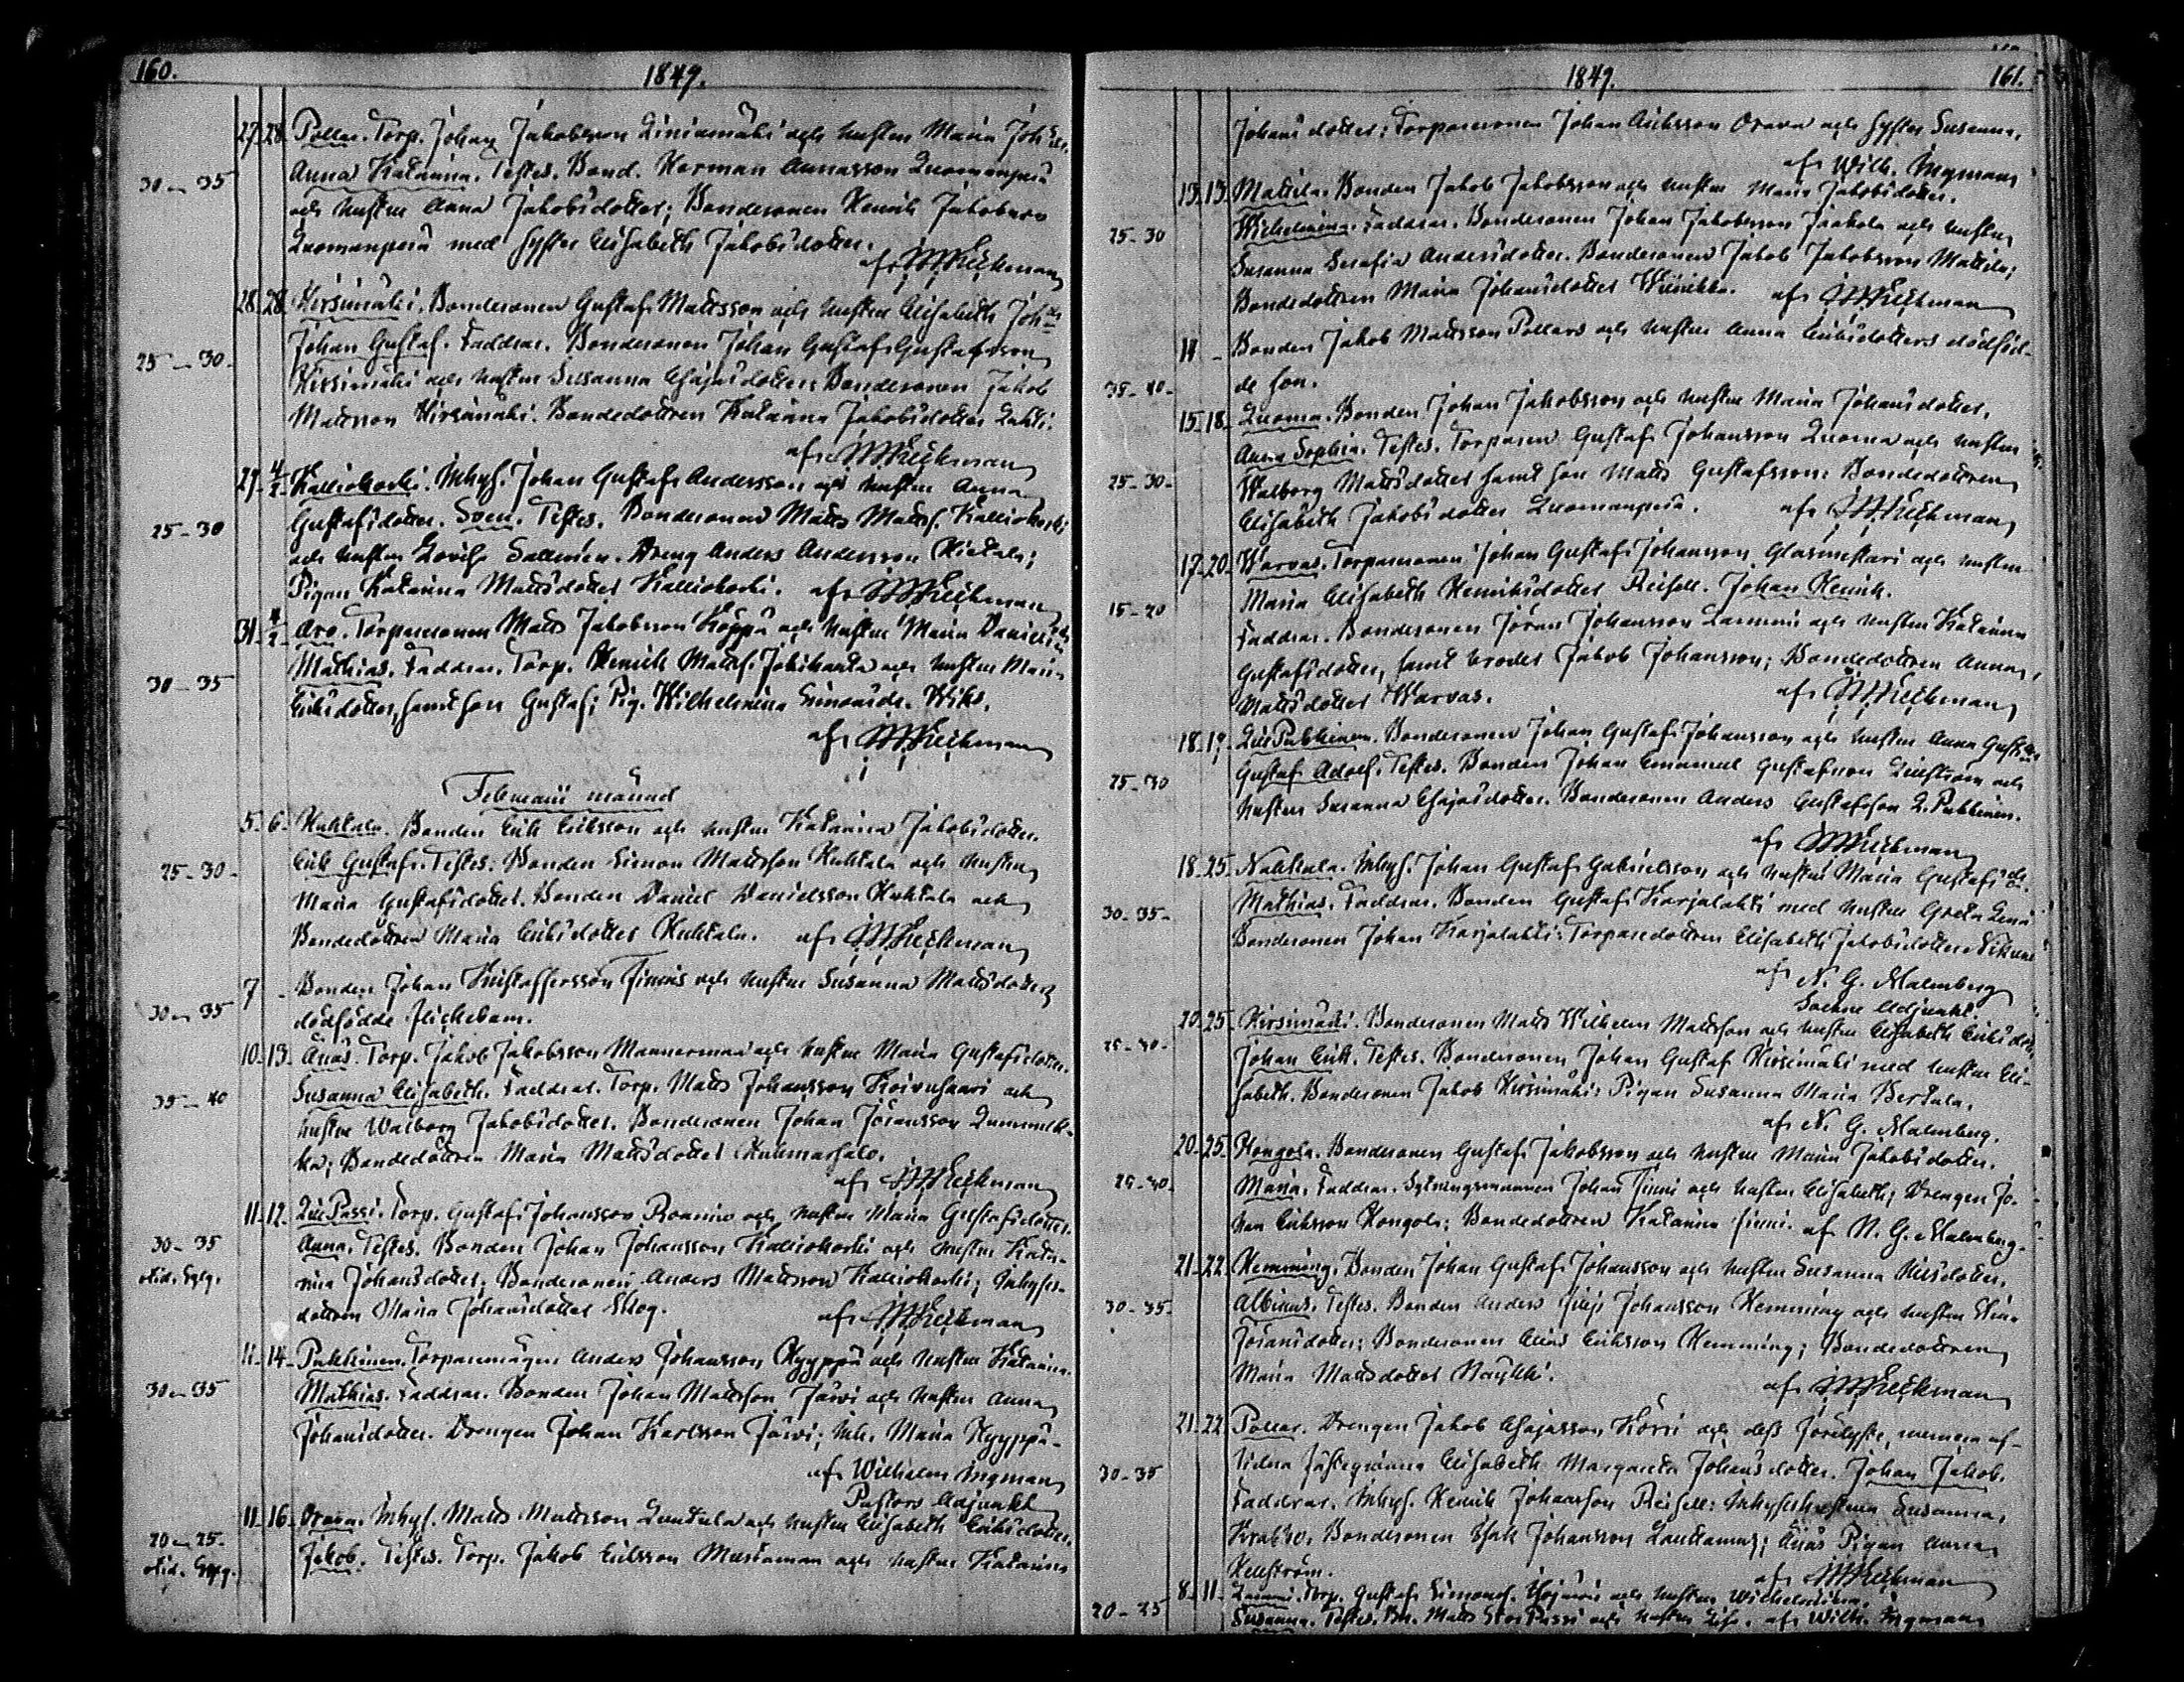 160.
1849.
27. 28. Pollar. Torp. Johan Jakobsson Liniamäki och hustru Maria Joh.
30-35 Anna Katarina. Testes. Bond. Herman Annasson Luomanperä
och hustru Anna Jakobsdotter; Bondesonen Henrik Jakobsson
Luomanperä med syster Elisabeth Jakobsdotter.
af
28. 28. Hirsimäki. Bondesonen Gustaf Mattsson och hustru Elisabeth Joh
25-30. Johan Gustaf. Faddrar. Bondesonen Johan Gustaf Gustafsson
Hirsimäki och hustru Susanna Esajasdotter. Bondesonen Jakob
Mattsson Hirsimäki. Bondedottren Katarina Jakobsdotter Lahti.
af
29. 4/2 Kalliokoski. Inhys. Johan Gustaf Andersson och hustru Anna
25-30 Gustafsdotter. Sven. Testes. Bondesonen Matts Matts. Kalliokoski
och hustru Lovisa Sallinen. Dreng Anders Andersson Hietala;
Pigan Katarina Mattsdotter Kalliokoski. af
31. 4/2 Aro. Torparesonen Matts Jakobsson Koppä och hustru Maria Daniels
30-35 Mathias. Faddrar. Torp. Henrik Matts. Jokihanta och hustru Maria
Eriksdotter, samt son Gustaf; Pig. Wilhelmina Simonsdr. Wiks.
af
Februarii månad
5. 6. Huhtala. Bonden Erik Eriksson och hustru Katarina Jakobsdotter.
25-30. Erik Gustaf. Testes: Bonden Simon Mattsson Huhtala och hustru
Maria Gustafsdotter. Bonden Daniel Danielsson Huhtala och
Bondedottren Maria Eriksdotter Huhtala. af
7 - Bonden Johan Kristoffersson Finnis och hustru Susanna Mattsdotters
30-35 dödfödda flickebarn.
10. 13. Änäs. Torp. Jakob Jakobsson Mannermaa och hustru Maria Gustafsdotter.
35-40 Susanna Elisabeth. Faddrar. Torp. Matts Johansson Koivusaari och
hustru Walborg Jakobsdotter. Bondesonen Johan Jöransson Lummuk-
ka; Bondedottren Maria Mattsdotter Kuhmasalo.
af
11. 12. Lill Passi. Torp. Gustaf Johansson Roanio och hustru Maria Gustafsdotter.
30-35 Anna. Testes. Bonden Johan Johansson Kalliokoski och hustru Kata-
rina Johansdotter; Bondesonen Anders Mattsson Kalliokoski; Inhyses-
dottren Maria Johansdotter Skog. af
11. 14. Pukkinen. Torparemågen Anders Johansson Hyyppä och hustru Katarina.
30-35 Mathias. Faddrar. Bonden Johan Mattsson Järvi och hustru Anna
Johansdotter. Drengen Johan Karlsson Järvi; Inh. Maria Hyyppä.
af Wilhelm Ingman
Pastors Adjunkt
11. 16. Orava. Inhys. Matts Mattsson Lautala och hustru Elisabeth Eriksdotter.
20-25. Jakob. Testes. Torp. Jakob Eriksson Mustamaa och hustru Katarina
1849.
161.
Johansdotter; Torparesonen Johan Eriksson Orava och syster Susanna.
af Wilh. Ingman
13. 13. Mattila. Bonden Jakob Jakobsson och hustru Maria Jakobsdotter.
25-30 Wilhelmina. Faddrar. Bondesonen Johan Jakobsson Jaakola och hustru
Susanna Serafia Andersdotter. Bondesonen Jakob Jakobsson Mattila;
Bondedottren Maria Johansdotter Wiinikka. af
14 - Bonden Jakob Mattsson Pollars och hustru Anna Eriksdotters dödföd-
35-40- de son.
15. 18. Luoma. Bonden Johan Jakobsson och hustru Maria Johansdotter.
Anna Sophia. Testes. Torparen Gustaf Johansson Luoma och hustru
25-30- Walborg Mattsdotter samt son Matts Gustafsson: Bondedottren
Elisabeth Jakobsdotter Luomanperä. af
17. 20. Warvas. Torparesonen Johan Gustaf Johansson Glasmestari och hustru
15-20 Maria Elisabeth Henriksdotter Reisell. Johan Henrik.
Faddrar. Bondesonen Jöran Johansson Lammi och hustru Katarina
Gustafsdotter, samt broder Jakob Johansson; Bondedottren Anna
Mattsdotter Warvas. af
18. 19. Lill Pukkinen. Bondesonen Johan Gustaf Johansson och hustru Anna Gust
25-30 Gustaf Adolf. Testes. Bonden Johan Emanuel Gustafsson Lillström och
hustru Susanna Esajasdotter. Bondesonen Anders Gustafsson L. Pukkinen.
af
18. 25. Nahkala. Inhys. Johan Gustaf Gabrielsson och hustru Maria Gustafs
30-35- Mathias. Faddrar. Bonden Gustaf Karjalahti med hustru Greta Lena
Bondesonen Johan Karjalahti: Torparedottren Elisabeth Jakobsdotter
af N. G. Malmberg
Sockne Adjunkt.
20. 25. Hirsimäki. Bondesonen Matts Wilhelm Mattsson och hustru Elisabeth Eriksdotter
Johan Erik. Testes. Bondesonen Johan Gustaf Hirsimäki med hustru Eli-
sabeth. Bondesonen Jakob Hirsimäki: Pigan Susanna Maria Bertula.
af N. G. Malmberg.
20. 25. Kongola. Bondesonen Gustaf Jakobsson och hustru Maria Jakobsdotter.
Maria. Faddrar. Sytningsmannen Johan Finni och hustru Elisabeth; Drengen Jo-
han Eriksson Kongola; Bondedottren Katarina Finni. af N. G. Malmberg.
21. 22. Hemming. Bonden Johan Gustaf Johansson och hustru Susanna
30-35- Albinus. Testes. Bonden Anders Johansson Hemming och hustru Stina
Jöransdotter; Bondesonen Elias Eriksson Hemming; Bondedottren
Maria Mattsdotter
af
21. 22 Pollar. Drengen Jakob Esajasson Körri och dess
30-35 Elisabeth Margareta Johansdotter. Johan Jakob.
Faddrar. Inhys. Henrik Johansson Reisell: Inhyseshustrun Susanna
Krabbo. Bondesonen Isak Johansson Lautamus; Pigan Anna
Hellström. af
8. 11. Lammi. Torp. Gustaf Simons. och hustru Wilhelmina.
20-25 Susanna. Testes. Bn. Matts Stor Passi och hustru Lisa. af Wilh. Ingman